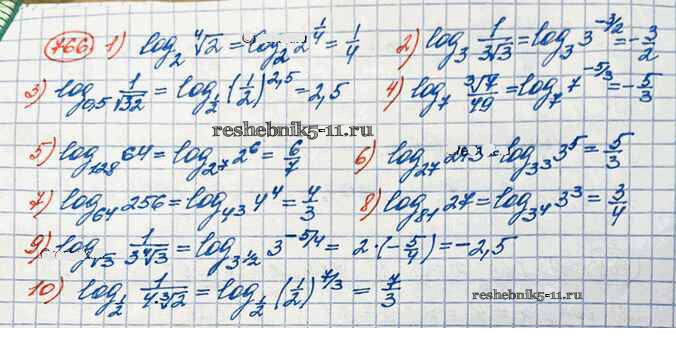 766 1) log₂ ⁴√2 = log₂ 2^(1/4) = 1/4 2) log₃ 1/(3√3) = log₃ 3^(-3/2) = -3/2
3) log₀,₅ 1/√32 = log_(1/2) (1/2)^(2,5) = 2,5 4) log₇ ³√7/49 = log₇ 7^(-5/3) = -5/3
reshebnik5-11.ru
5) log₁₂₈ 64 = log_(2^7) 2⁶ = 6/7 6) log₂₇ 243 = log_(3^3) 3⁵ = 5/3
7) log₆₄ 256 = log_(4^3) 4⁴ = 4/3 8) log₈₁ 27 = log_(3^4) 3³ = 3/4
9) log_(√3) 1/(3 ⁴√3) = log_(3^(1/2)) 3^(-5/4) = 2·(-5/4) = -2,5
10) log_(1/2) 1/(4·³√2) = log_(1/2) (1/2)^(7/3) = 7/3
reshebnik5-11.ru